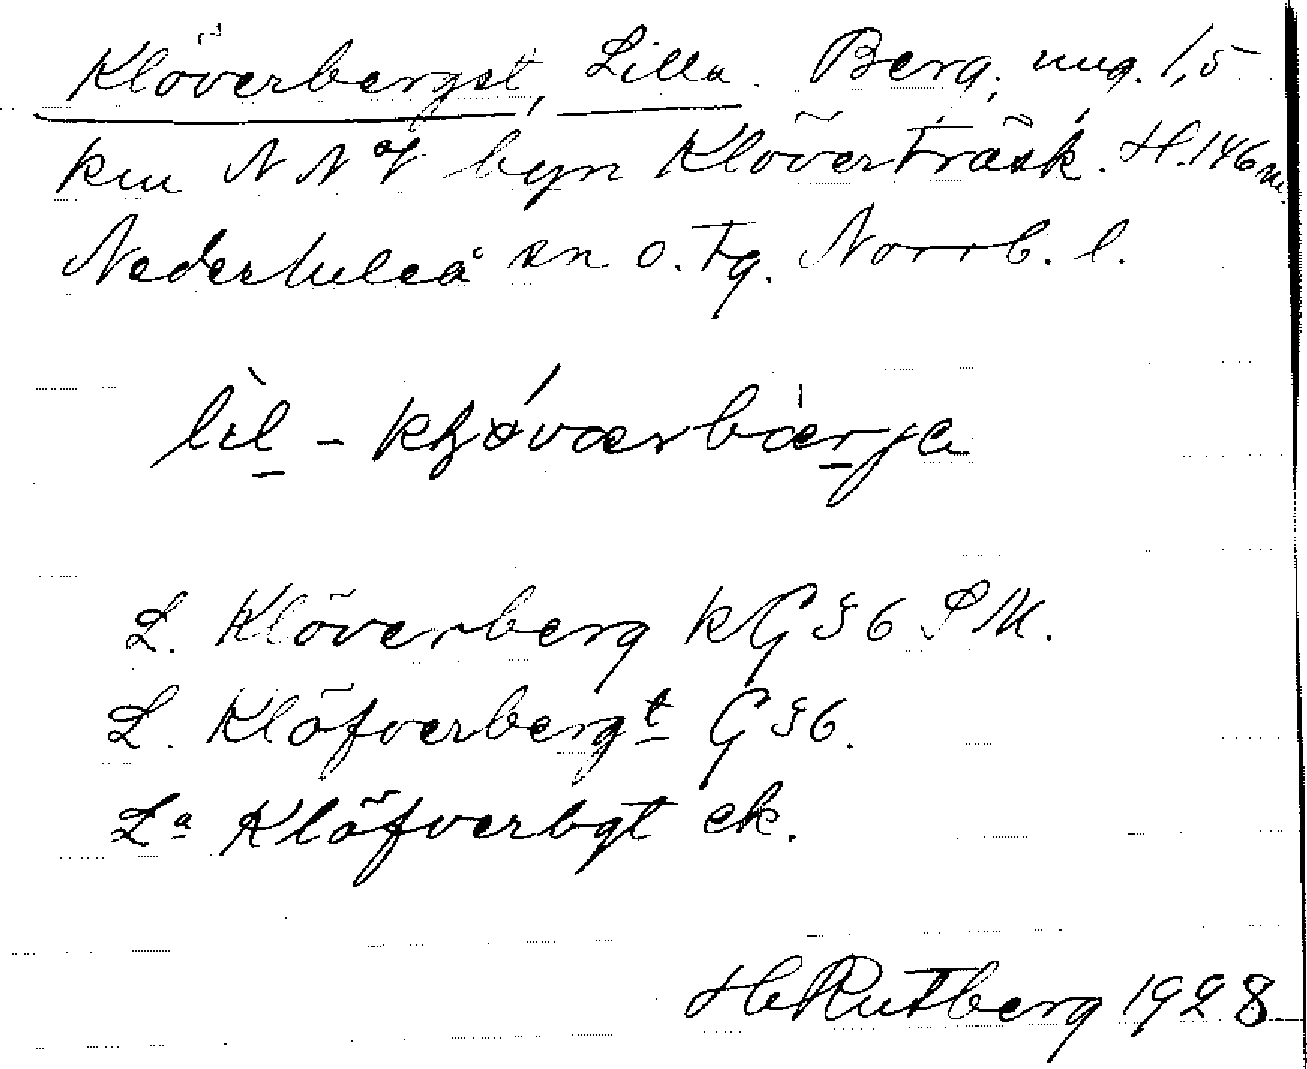 Klöverberget, Lilla. Berg, ung. 1,5
km NNV byn Klöverträsk. H. 146 m.
Nederluleå sn o. tg. Norrb. l.
lìl - kḷǿværbærja
L. Klöverberg k G § 6 S M.
L. Klöfverbergt G § 6.
La Klöfverbgt ek.
H Rutberg 1928